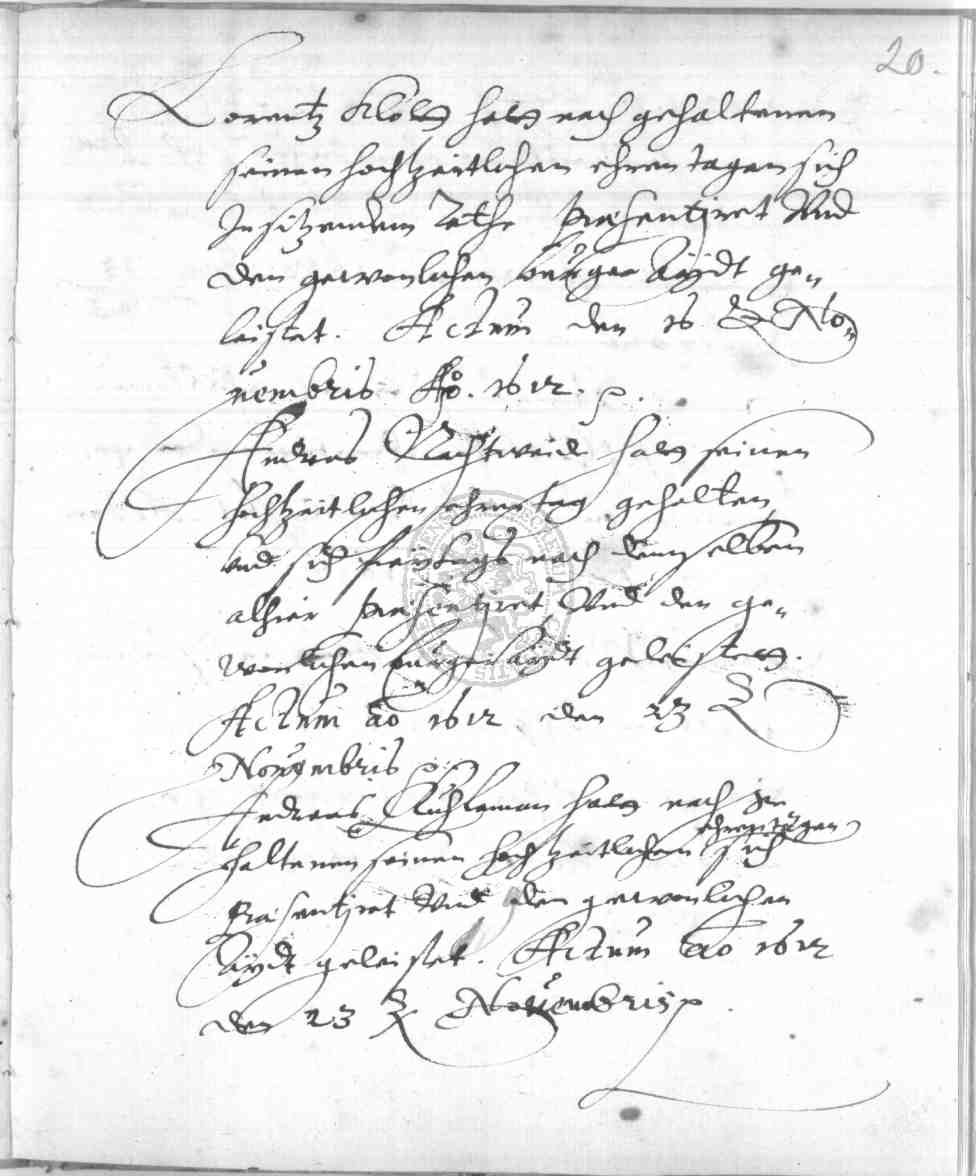 20.
Lorentz Klob hatt nach gehaltenen
seinen hochzeitlichen ehren tagen sich
In sitzendem Rathe præsentiret Vnd
den gewonlichen burger Aÿdt ge-
leistet. Actum den 16 No-
uembris Ao. 1612.
Andreas Nachtweide hatt seinen
hochzeitlichen ehren tag gehalten,
vnd sich freÿtags nach demselben
alhier præsentiret Vnd den ge-
wonlichen burger aÿdt geleistett.
Actum ao 1612 den 23
Nouembris
Andreas hatt nach ge
haltenen seinen hochzeitlichen ehren tagen sich
Præsentiret Vnd den gewonlichen
Aÿdt geleistet. Actum ao 1612
den 23 Nouembris